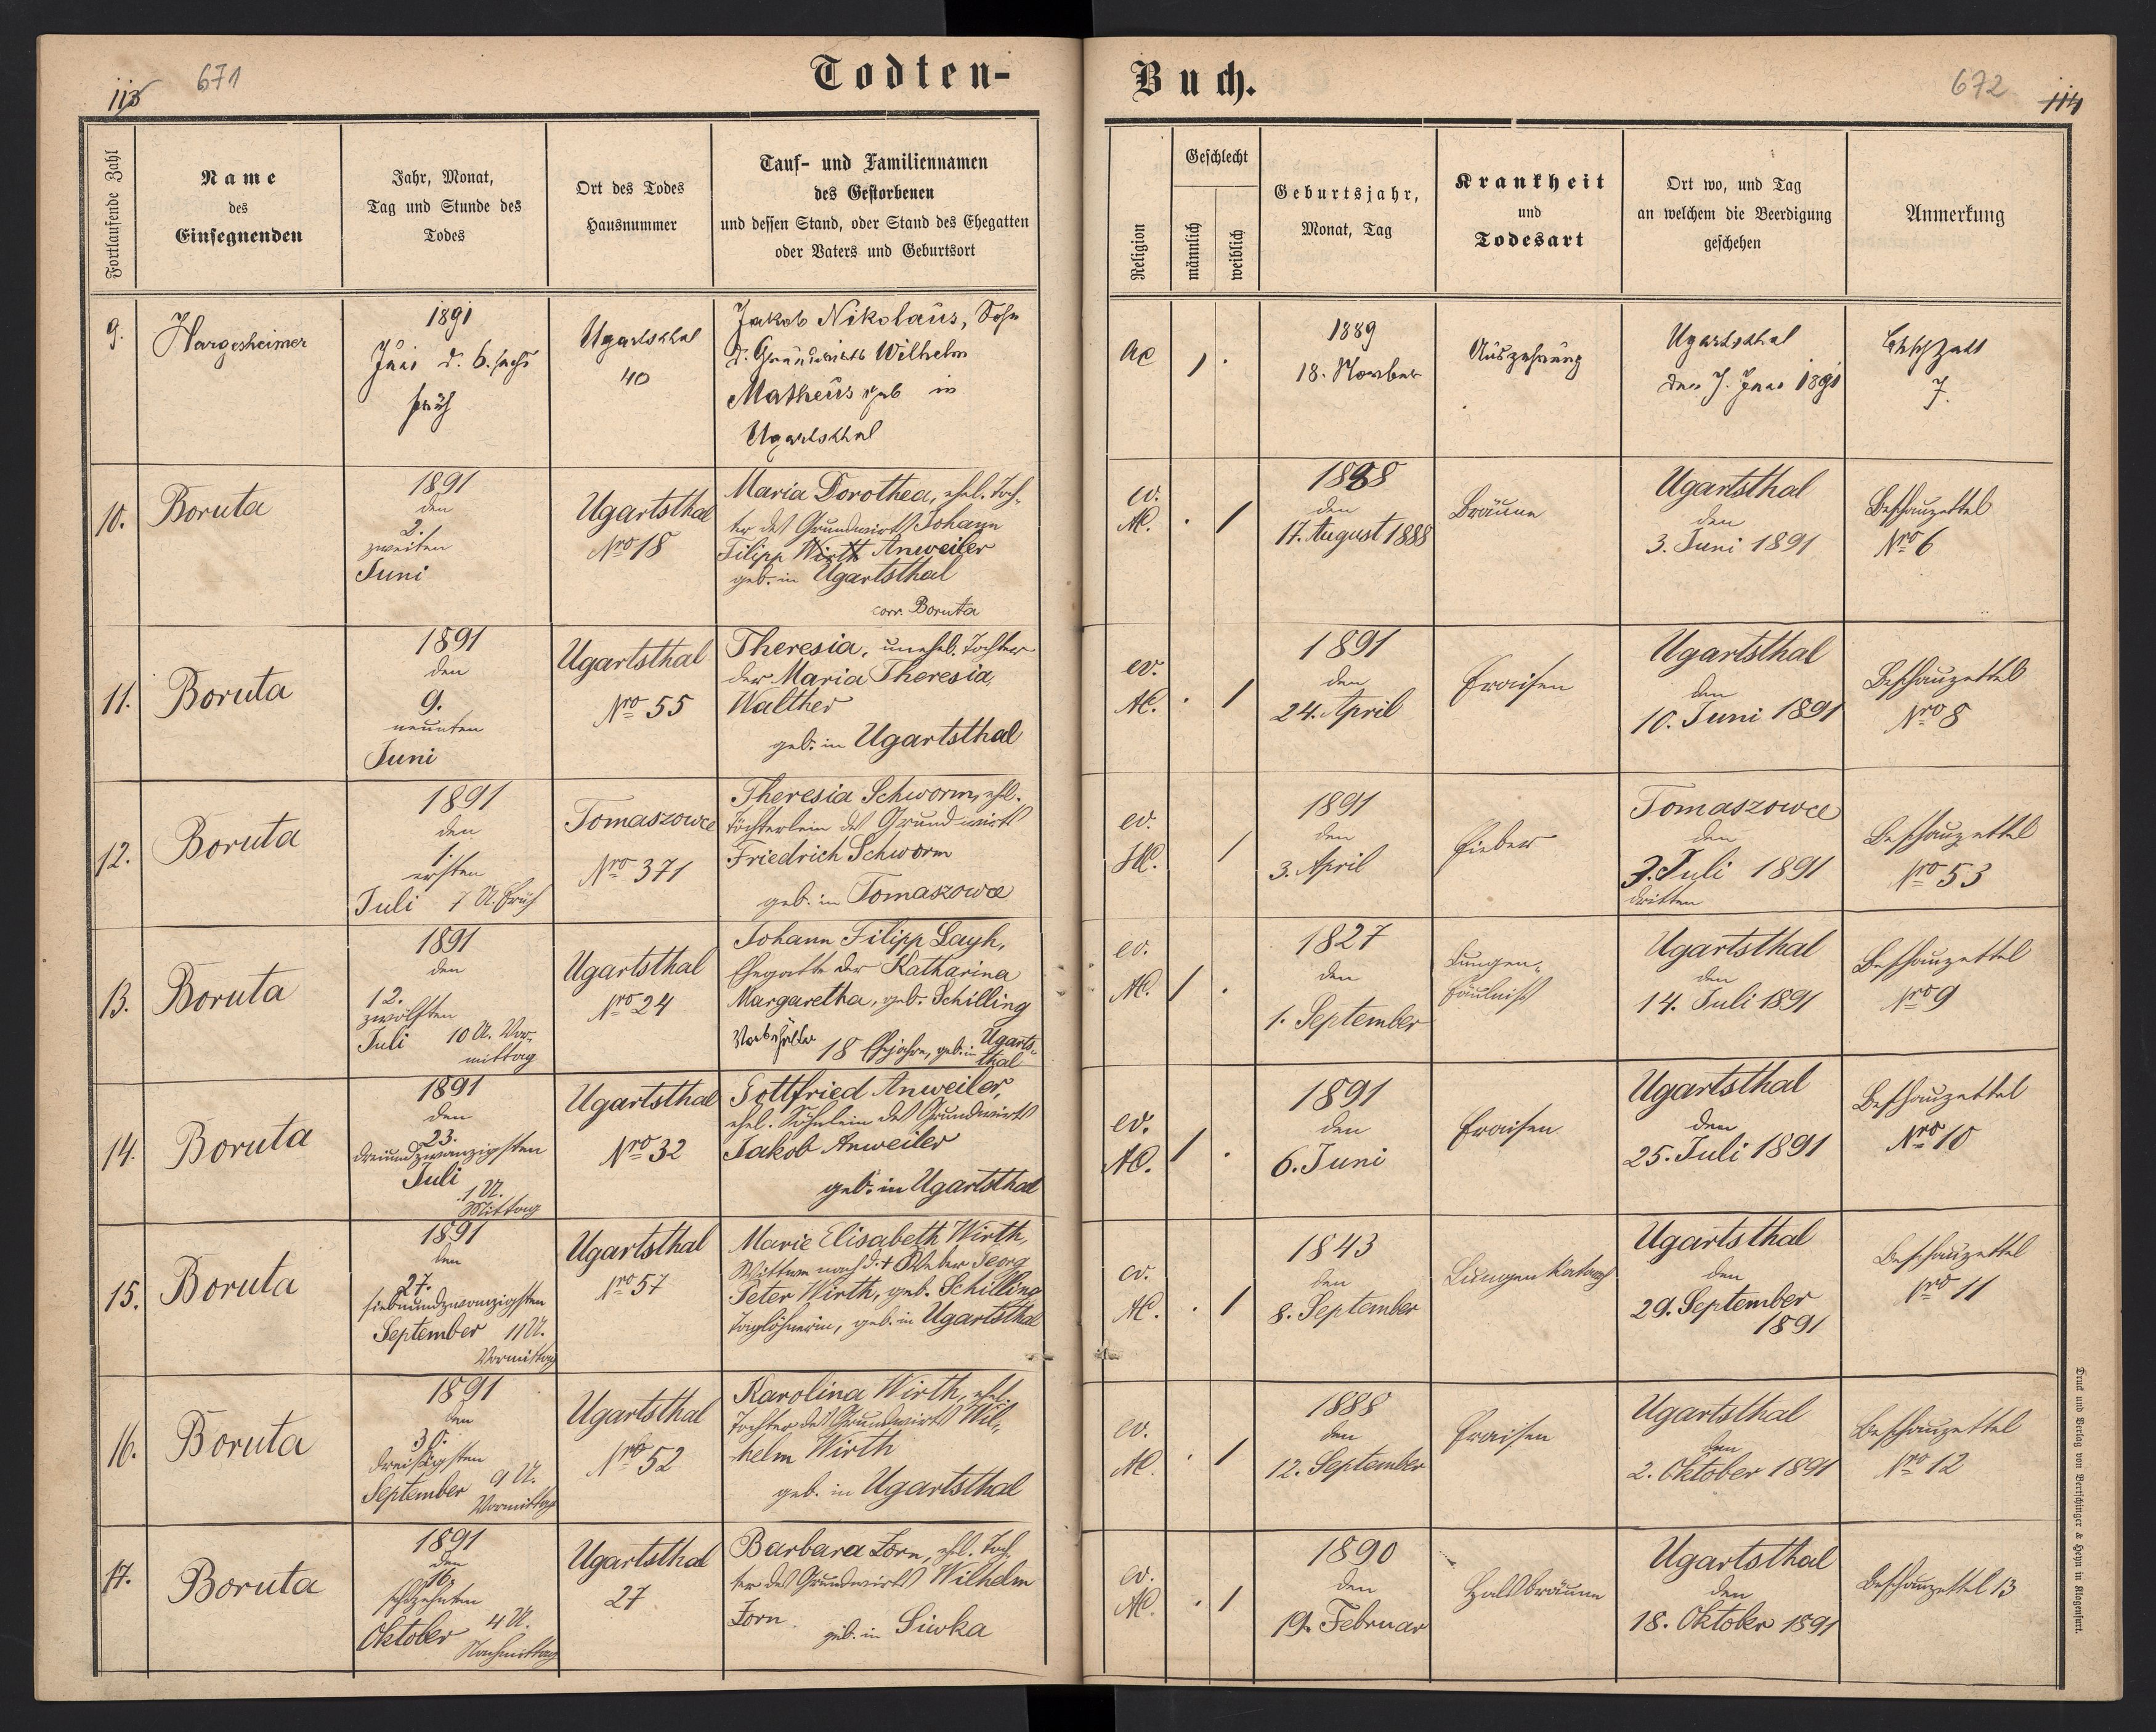 671
113
Todten-
Buch.
672
114
Fortlaufende Zahl
Name
des
Einsegnenden
Jahr, Monat,
Tag und Stunde des
Todes
Ort des Todes
Hausnummer
Tauf- und Familiennamen
des Gestorbenen
und dessen Stand, oder Stand des Ehegatten
oder Vaters und Geburtsort
Religion
Geschlecht
männlich
weiblich
Geburtsjahr,
Monat, Tag
Krankheit
und
Todesart
Ort wo, und Tag
an welchem die Beerdigung
geschehen
Anmerkung
9.
Hargesheimer
1891
Juni d. 6. sechs
früh
Ugartsthal
40
Jakob Nikolaus, Sohn
d. Grundwirts Wilhelm
Matheus geb in
Ugartsthal
AC
1
.
1889
18. November
Auszehrung
Ugartsthal
den 7. Juni 1891
7.
10.
Boruta
1891
den
2.
zweiten
Juni
Ugartsthal
Nro 18
Maria Dorothea, ehel. Toch-
ter des Grundwirts Johann
Filipp Wirth Anweiler
geb. in Ugartsthal
corr. Boruta
ev.
AC.
.
1
1888
den
17. August 1888
Bräune
Ugartsthal
den
3. Juni 1891
Beschauzettel
Nro 6
11.
Boruta
1891
den
9.
neunten
Juni
Ugartsthal
Nro 55
Theresia, unehel. Tochter
der Maria Theresia
Walther
geb. in Ugartsthal
ev.
AC.
.
1
1891
den
24. April
Fraisen
Ugartsthal
den
10. Juni 1891
Beschauzettel
Nro 8
12.
Boruta
1891
den
1.
ersten
Juli 7 U. Früh
Tomaszowce
Nro 371
Theresia Schworm, ehl.
Töchterlein des Grundwirts
Friedrich Schworm
geb. in Tomaszowce
ev.
HC.
1
1891
den
3. April
Fieber
Tomaszowce
den
3. Juli 1891
dritten
Beschauzettel
Nro 53
13.
Boruta
1891
den
12.
zwölften
Juli 10 U. Vor-
mittag
Ugartsthal
Nro 24
Johann Filipp Layh,
Ehegatte der Katharina
Margaretha, geb. Schilling
18 Ehejahre, geb. in Ugarts-
thal
ev.
AC.
1
.
1827
den
1. September
Lungen-
fäulniß
Ugartsthal
den
14. Juli 1891
Beschauzettel
Nro 9
14.
Boruta
1891
den
23.
dreiundzwanzigsten
Juli
1 U.
Mittag
Ugartsthal
Nro 32
Gottfried Anweiler,
ehel. Söhnlein des Grundwirts
Jakob Anweiler
geb. in Ugartsthal
ev.
AC.
1
.
1891
den
6. Juni
Fraisen
Ugartsthal
den
25. Juli 1891
Beschauzettel
Nro 10
15.
Boruta
1891
den
27.
siebenundzwanzigsten
September 11 U.
Vormittag
Ugartsthal
Nro 57
Marie Elisabeth Wirth,
Wittwe nach d. † Weber Georg
Peter Wirth, geb. Schilling
Taglöhnerin, geb. in Ugartsthal
ev.
AC.
.
1
1843
den
8. September
Lungenkatarrh
Ugartsthal
den
29. September
1891
Beschauzettel
Nro 11
16.
Boruta
1891
den
30.
dreißigsten
September 9 U.
Vormittag
Ugartsthal
Nro 52
Karolina Wirth, ehel.
Tochter des Grundwirts Wil-
helm Wirth
geb. in Ugartsthal
ev.
AC.
.
1
1888
den
12. September
Fraisen
Ugartsthal
den
2. Oktober 1891
Beschauzettel
Nro 12
17.
Boruta
1891
den
16.
sechzehnten
Oktober 4 U.
Nachmittag
Ugartsthal
27
Barbara Zorn, ehl. Toch
ter des Grundwirts Wilhelm
Zorn
geb. in Siwka
ev.
AC.
.
1
1890
den
19. Februar
Halsbräune
Ugartsthal
den
18. Oktober 1891
Beschauzettel 13
Druck und Verlag von Bertschinger & Heyn in Klagenfurt.